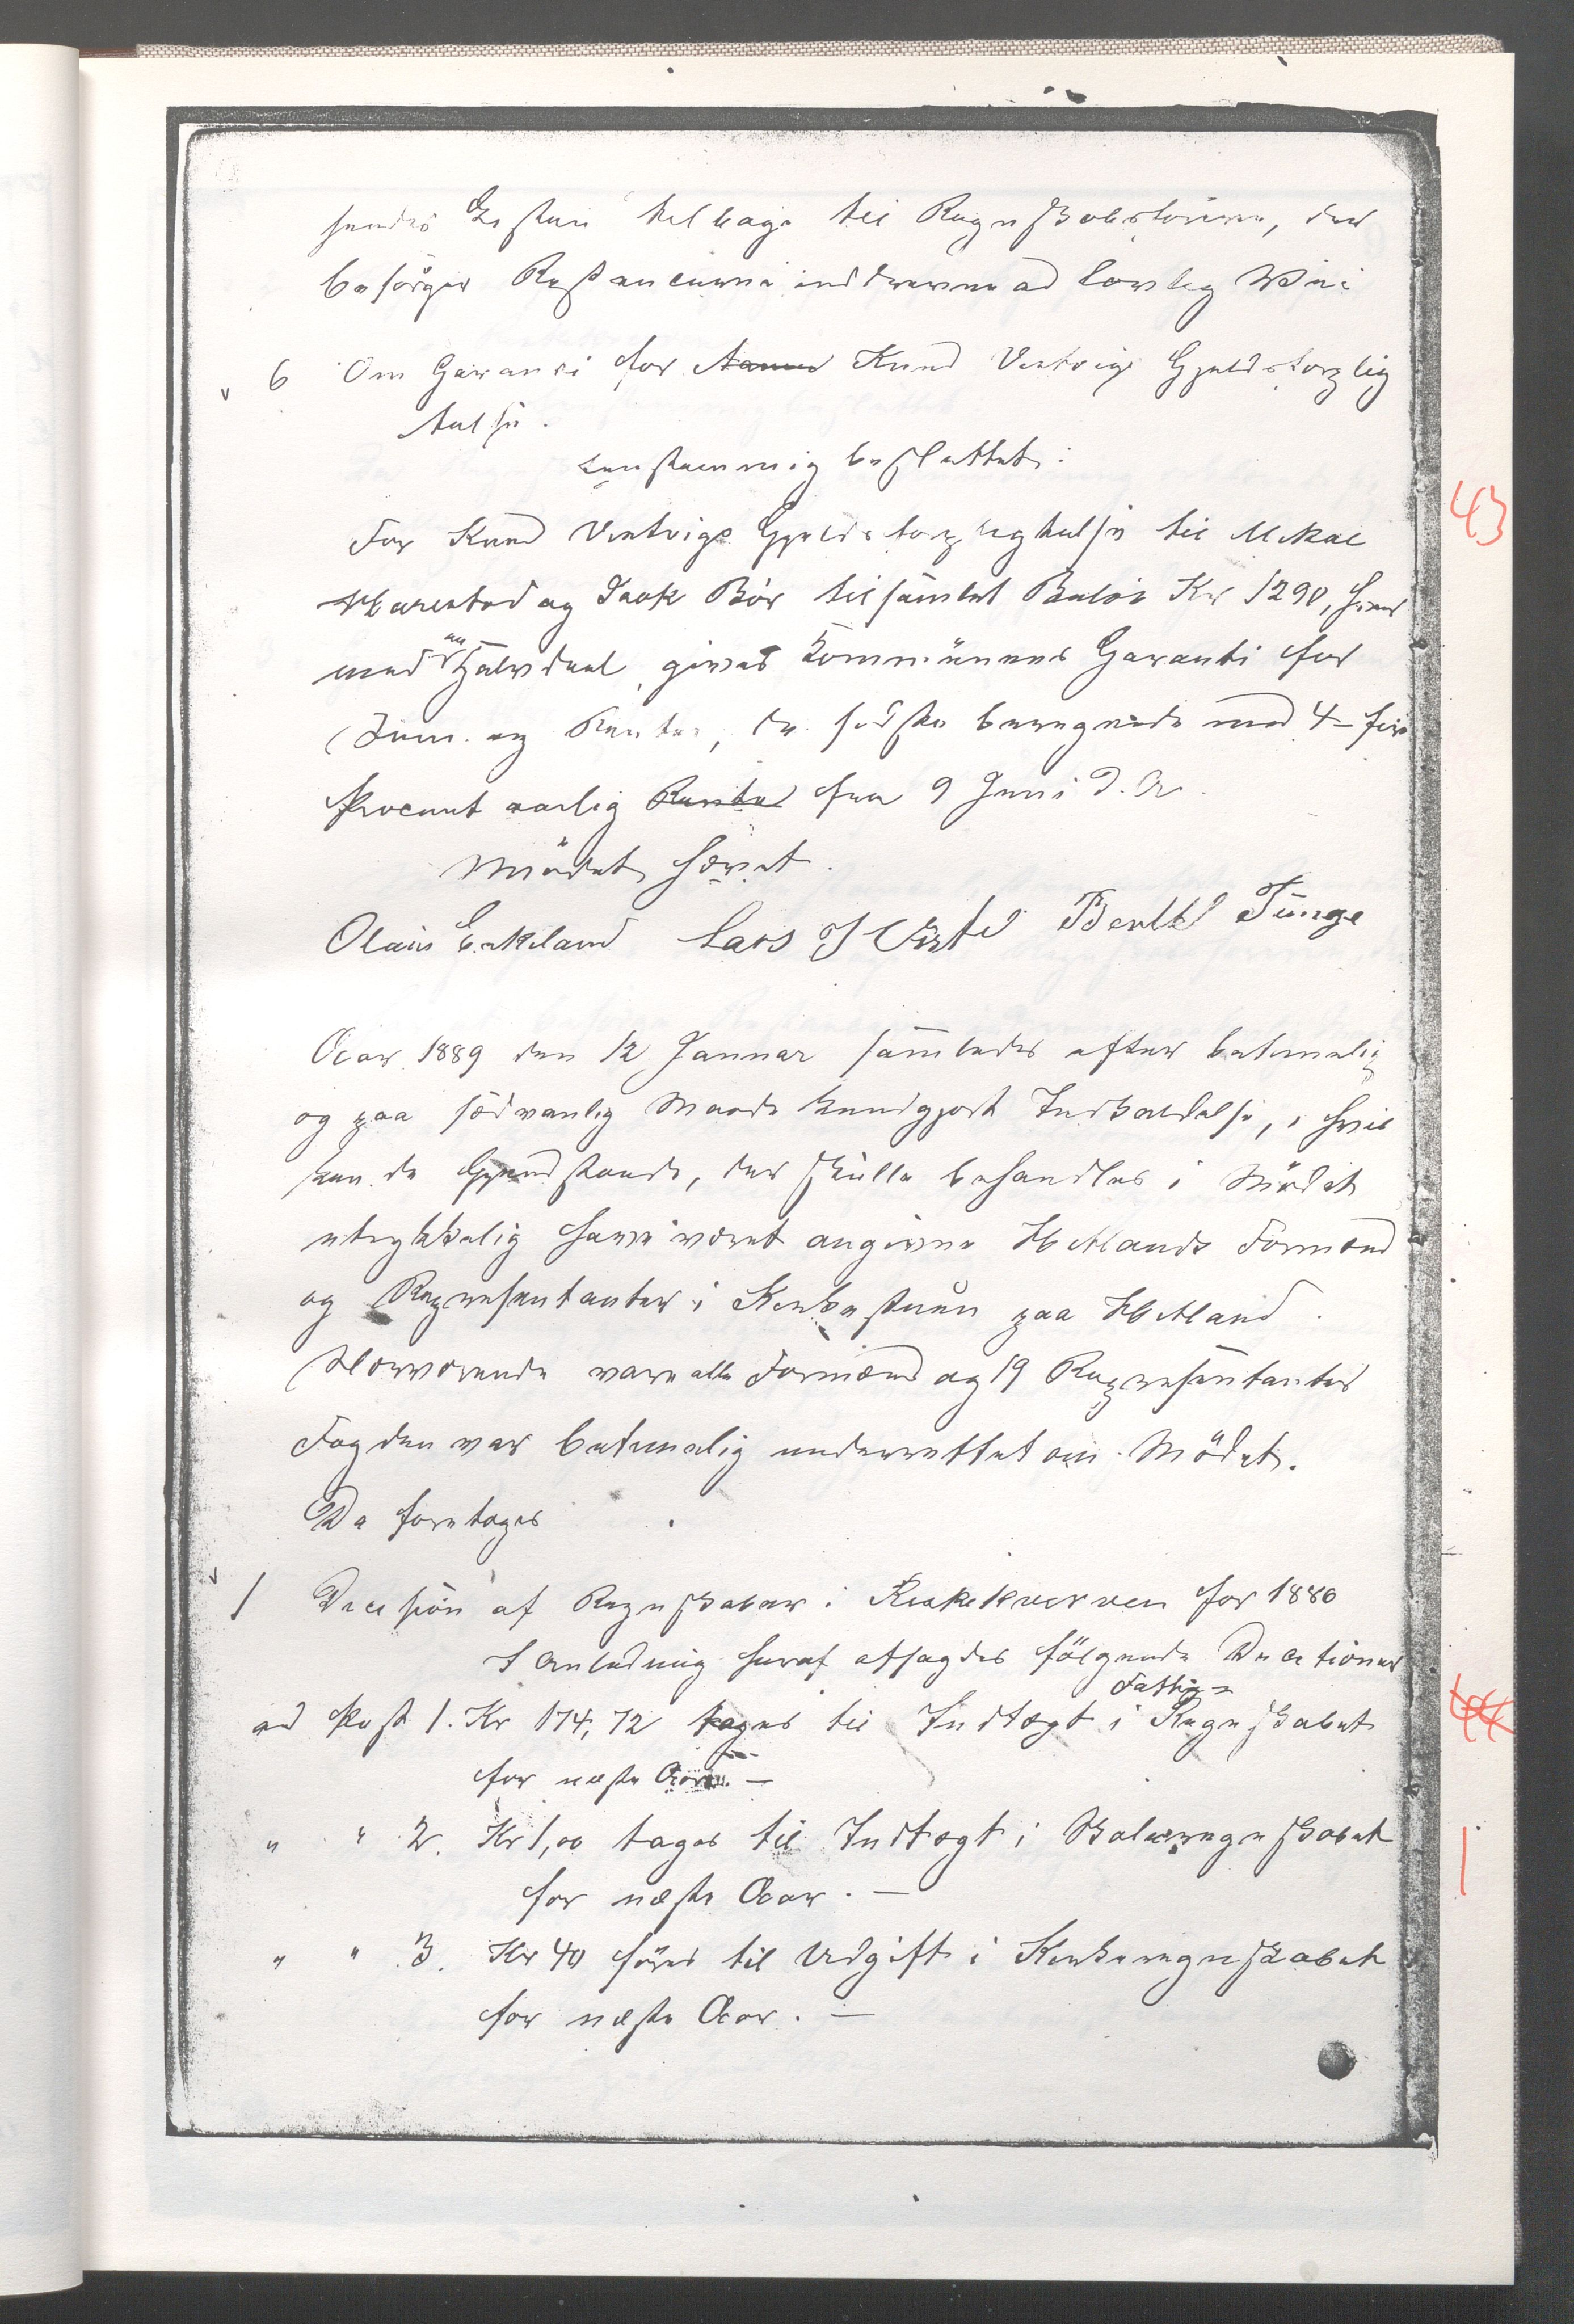 sendes Listen tilbage til Regnskabsføreren, der
besørger Restancerne inddrevne ad lovlig Vei
6 Om Garanti for Knud Ventvigs Gjeldsforplig
telse.
Eenstemmig besluttet:
For Knud Ventvigs Gjeldsforpligtelse til Mikal
og Isak Bø tilsammen Beløb Kr 1290, hver
med en Halvdeel, gives Kommunens Garanti for
og Renter, de sidste beregnede med 4 - fire
Procent aarlig Renter fra 9 Juni d. A.
Mødet hævet.
Olaus Eskeland Lars J Bertel Tunge
Aar 1889 den 12 Januar samledes efter betimelig
og paa sædvanlig Maade kundgjort Indkaldelse, i hvil
ken de Gjenstande, der skulle behandles i Mødet
udtrykkelig have været angivne Hetlands Formænd
og Repræsentanter i Kirkestuen paa Hetland.
Nærværende vare alle Formænd og 19 Repræsentanter
Fogden var betimelig underrettet om Mødet.
Da foretoges
1 Decision af Regnskaber i for 1886
I Anledning heraf afsagdes følgende Decisioner
Fattig=
ad Post 1. Kr 174,72 tages til Indtægt i Regnskabet
for næste Aar. —
" " 2. Kr 1,00 tages til Indtægt i Skoleregnskabet
for næste Aar. —
" " 3. Kr 40 føres til Udgift i Kirkeregnskabet
for næste Aar. —
43